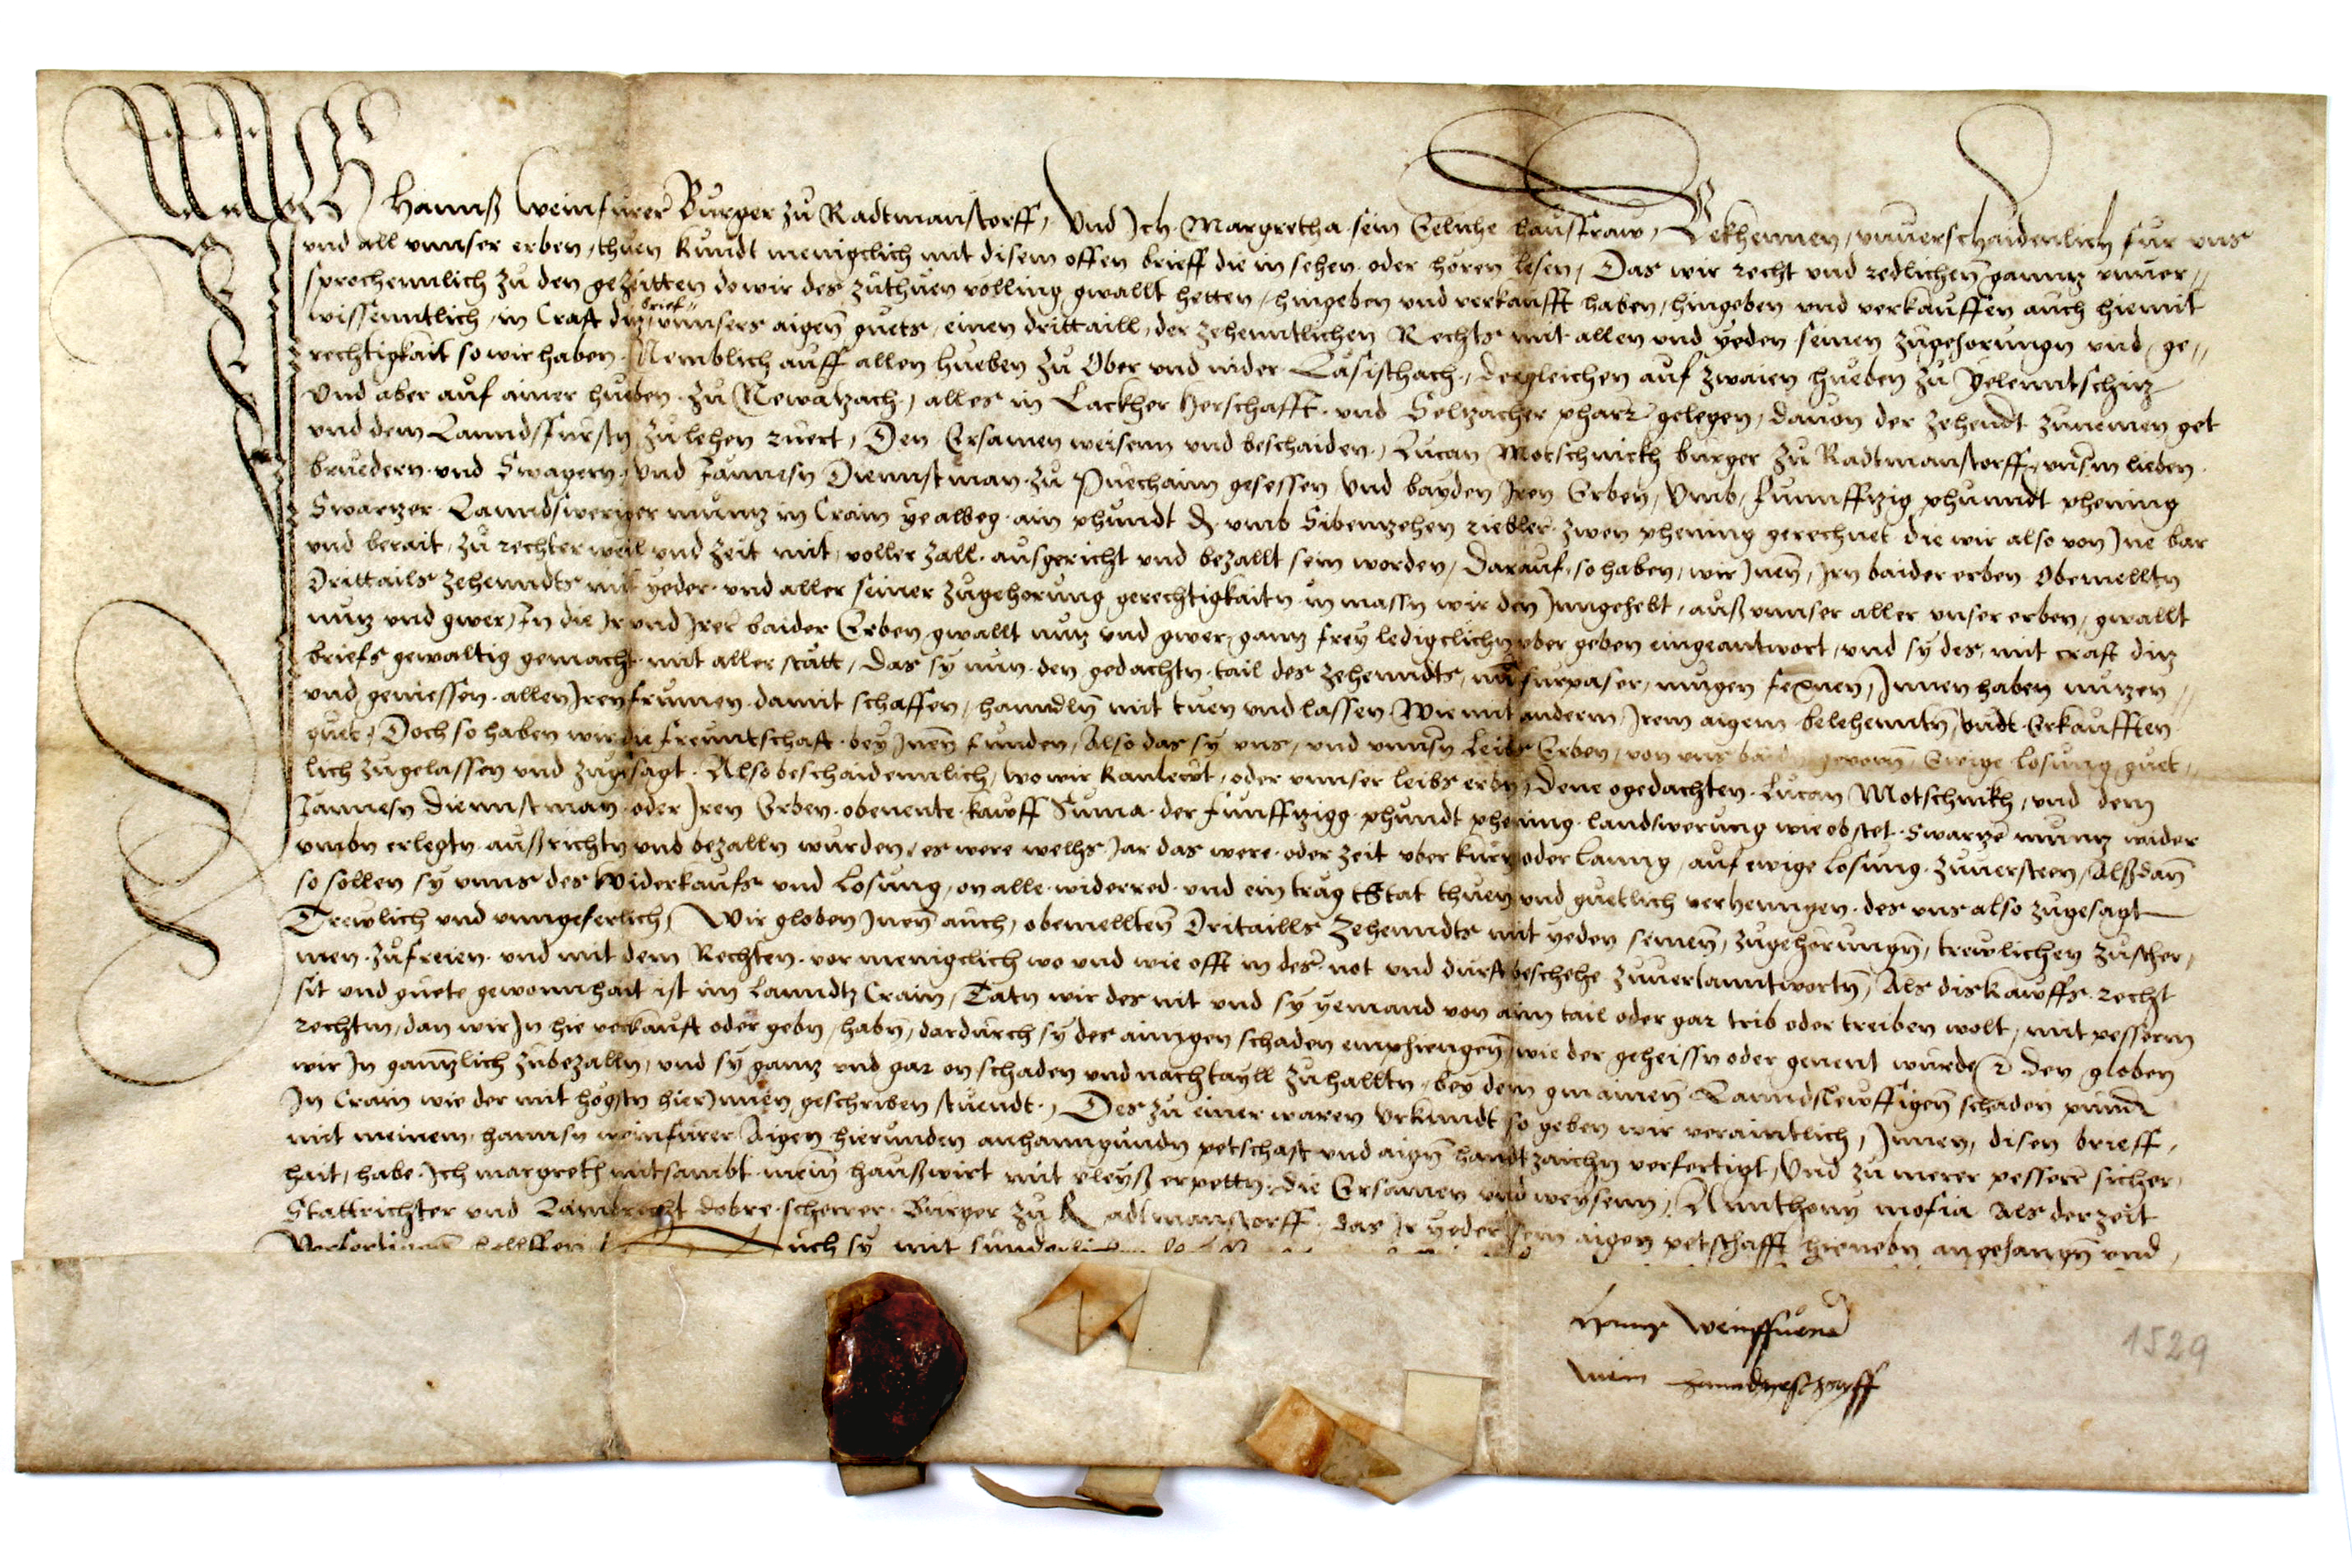 Ich Hannß Weinfurer Burger zu Radtmanstorff, Und Ich Margretha sein Eeliche hausfraw, Bekhennen, unuerschaidenlich fur uns
und all unnser erben, thuen kundt menigclich mit disem offen brieff die in sehen oder horen lesen, Das wir recht und redlichen ganntz unuer,,
sprechennlich zu den gezeitten do wir des zuthuen volling gwallt hetten, hingeben und verkaufft haben, hingeben und verkauffen auch hiemit
wissenntlich, in Craft ditz brief unnsers aigen guets, einen drittaill, der zehenntlichen Rechts mit allen und yeden seinen zugehorungn und, ge,,
rechtigkait so wir haben. Nemblich auff allen hueben zu Ober und nider Lasisthach, desgleichen auf zwaien hueben zu Yelenntschitz
Und aber auf ainer hueben zu Newatzach, alles in Lackher Herschafft und Seltzacher pharr gelegen, dauon der zehendt zunemen get
und dem Lanndsfursten zu lehen ruert, Den Ersamen weisenn und beschaiden, Lucan Motschnickh burger zu Radtmanstorff, unsm lieben
bruedern und Swagern, und Jannesn Diennstman zu Puechaim gesessen, und bayden Iren Erben, Umb, funnfftzig phunndt phening
Swartzer Lanndswerunger muntz in Crain ye albeg ain phundt d umb Sibentzehen riebler zwen phening gerechnet die wir also von Ine bar
und berait, zu rechter weil und zeit mit, voller zall ausgericht und bezallt sein worden, Darauf, so haben, wir Inen, Irn baider erben Obemellten
Drittails zehenndts mit yeder und aller seiner zugehorung gerechtigkaitn in massn wir den Inngehebt, auß unnser aller unser erben, gwallt
nutz und gwer, In die Ir und Irer baider Erben, gwallt nutz und gwer, gantz frey ledigclichn uber geben eingeantwort, und sy des, mit craft ditz
briefs gewaltig gemacht mit aller statt, das sy nun den gedachtn tail des zehenndts, nu furpaser, mugen fexnen, Innen haben nutzen
und, geniessen allen Iren frumen damit schaffen, hanndln mit tuen und lassen Wie mit anderm, Irem aigem belehenntn, undt Erkaufften
guet, Doch so haben wir die freuntschaft bey Inen funden, Also das sy uns, und unnsn Leibs Erben, von uns baid geporn Ewige losung guet,,
lich zugelassen und zugesagt. Also beschaidennlich, wo wir kanlewt, oder unnser leibs erbn, Dene ogedachten Lucan Motschnikh, und dem
Jannesn Diennstman oder Iren Erben obenente kawff Suma der funfftzigg phundt phening landswerung wie obstet swartze muntz wider
umbn erlegtn außrichtn und bezalln wurden, es were welhs Jar das were oder zeit uber kurtz oder lanng, auf ewige losung zuuersteen, Alßdan
so sollen sy unns des Widerkaufs und losung, on alle widerred und ein trag Stat thuen und guetlich verhenngen des uns also zugesagt
Trewlich und unngeferlich, Wir globen Inen auch, obemellten Dritaills Zehenndts mit yeden seinen, zugehorungn, trewlichen zuscher,
men zufreien und mit dem Rechten vor menigclich wo und wie offt in des not und durft beschehe zuuerlanntwortn, Als diskawffs recht
sit und guete gewonnhait ist im Lanndtz Crain, Tatn wir des nit und sy yemand von aim tail oder gar trib oder treiben wolt, mit pesserm
rechtm, dan wir In hie verkauft oder gebn, habn, dardurch sy des ainigen schaden emphiengen, wie der geheissn oder genent wurde, den globen
wir In ganntzlich zubezalln, und sy gantz und gar on schaden und nachtayll zuhalltn, bey dem gmainen Lanndslewffigen schaden punt
In Crain wie der mit hogstn hierInnen geschriben stuendt, Des zu einer waren Urkundt so geben wir veraintlich, Innen, disen brieff,
mit meinem, hannsn weinfurer Aigen hierunden anhanngundn petschaft und aign handtzaichn verfertigt, Und zu merer pesserr sicher,
hait, habe Ich margreth mitsambt mein haußwirt mit vleyß erpettn, die Ersamen und weysenn, Annthony mosia Als der zeit
Stattrichter und Lambrecht dobre scherrer Burger zu Radtmanstorff, das Ir yeder sein aigen petschafft hienebn angehangn und,
Auch sy mit
Hanns Weinffuerer
mein hanndgeschryfft
1529